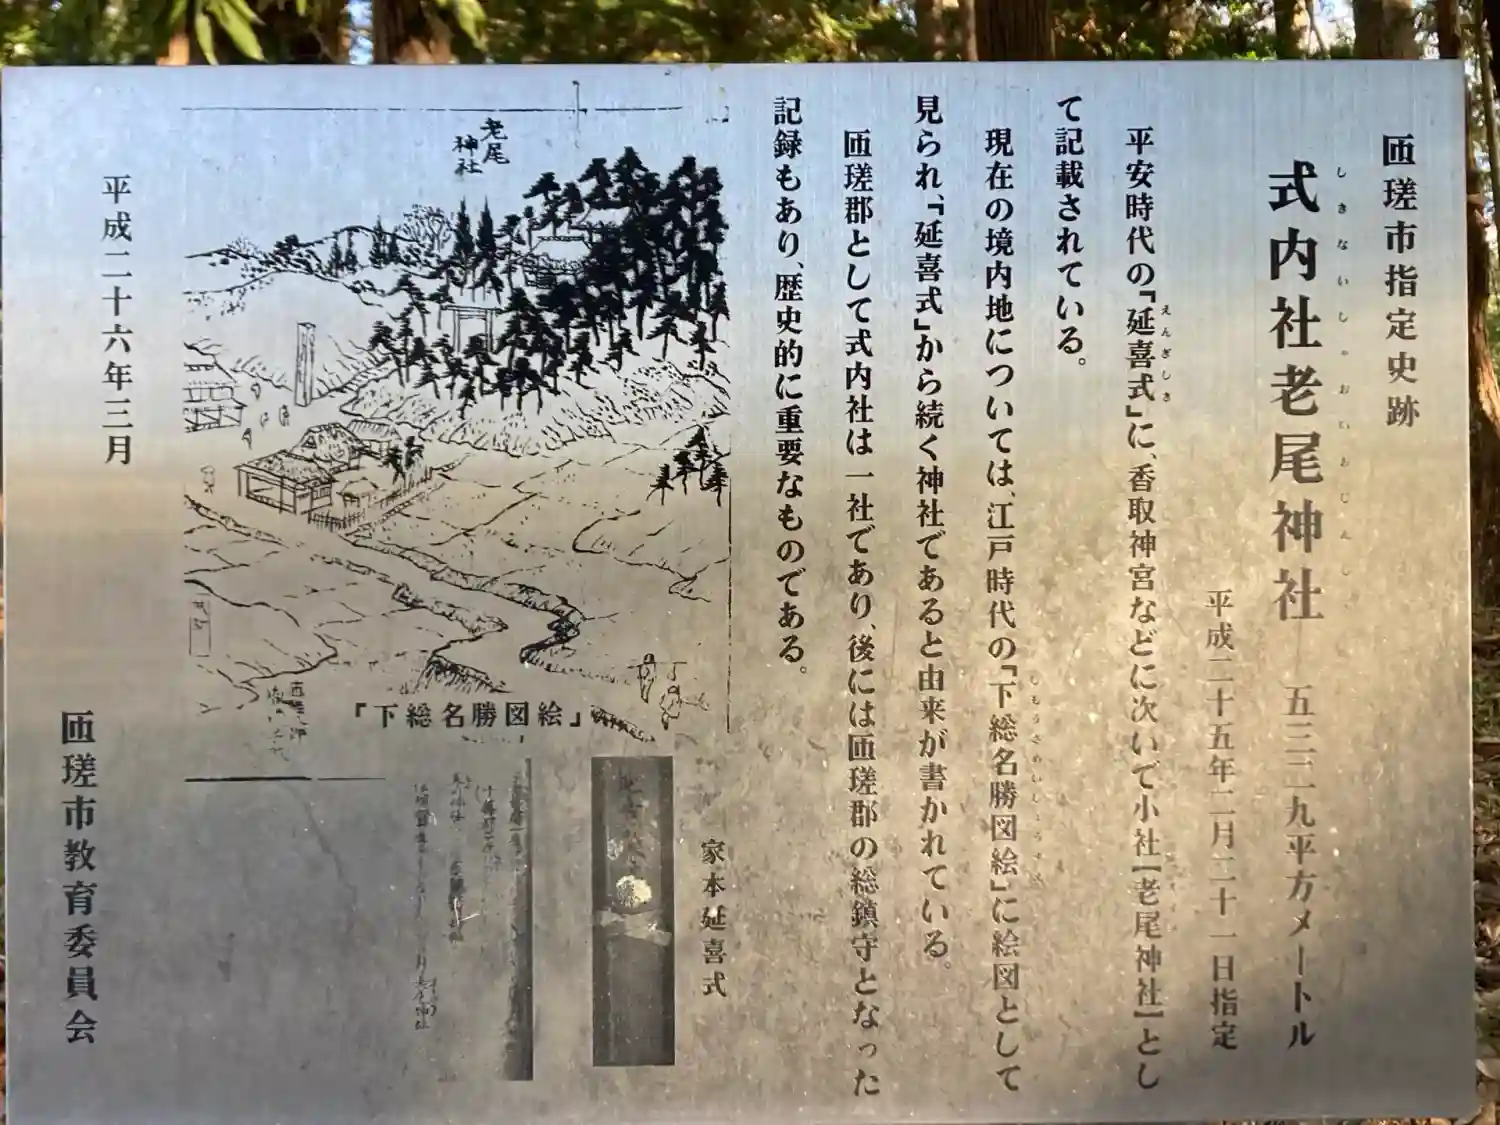 匝瑳市指定史跡
しきないしゃおいおじんじゃ
式内社老尾神社 五三三九平方メートル
平成二十五年二月二十一日指定
えんぎしき
平安時代の「延喜式」に、香取神宮などに次いで小社【老尾神社】とし
て記載されている。
しもうさめいしょうずえ
現在の境内地については、江戸時代の「下総名勝図絵」に絵図として
見られ、「延喜式」から続く神社であると由来が書かれている。
匝瑳郡として式内社は一社であり、後には匝瑳郡の総鎮守となった
記録もあり、歴史的に重要なものである。
老尾
神社
「下総名勝図絵」
家本延喜式
平成二十六年三月
匝瑳市教育委員会